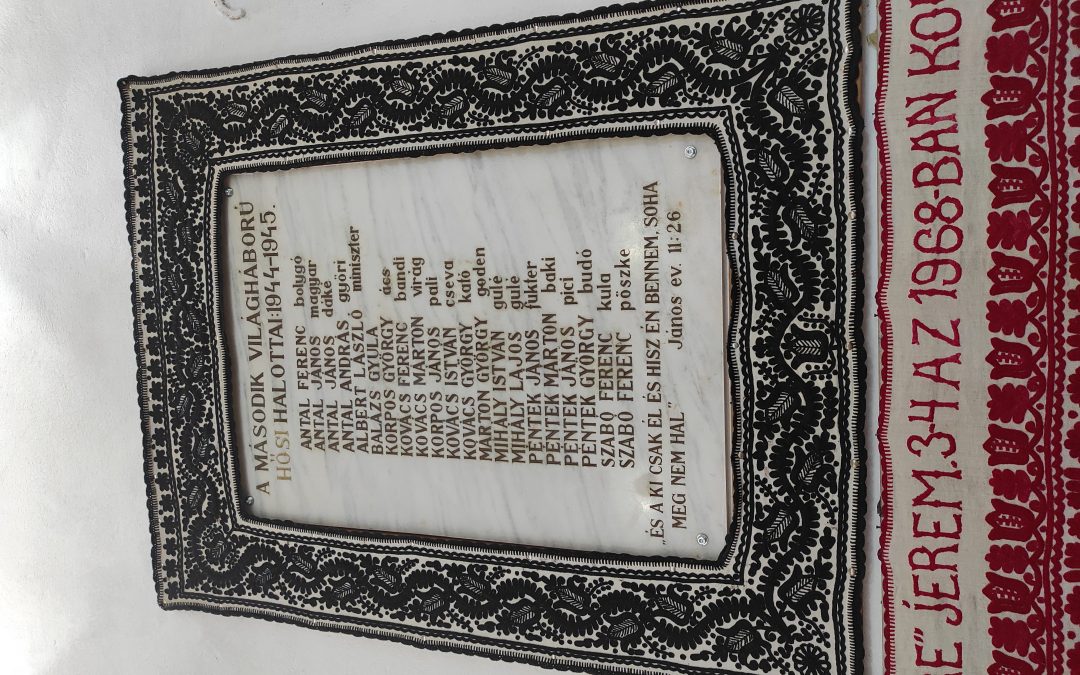 A MÁSODIK VILÁGHÁBORÚ
HŐSI HALOTTAI:1944-1945.
ANTAL FERENC bolygó
ANTAL JÁNOS magyar
ANTAL JÁNOS dáké
ANTAL ANDRÁS győri
ALBERT LÁSZLÓ miniszter
BALÁZS GYULA
KORPOS GYÖRGY ács
KOVÁCS FERENC bandi
KOVÁCS MÁRTON virág
KORPOS JÁNOS pali
KOVÁCS ISTVÁN cseva
KOVÁCS GYÖRGY kató
MÁRTON GYÖRGY geden
MIHÁLY ISTVÁN gulé
MIHÁLY LAJOS gulé
PÉNTEK JÁNOS fükter
PÉNTEK MÁRTON baki
PÉNTEK JÁNOS pici
PÉNTEK GYÖRGY budó
SZABÓ FERENC kula
SZABÓ FERENC pöszke
„ÉS A KI CSAK ÉL ÉS HISZ ÉN BENNEM, SOHA
MEG NEM HAL." János ev. 11:26
"JEREM.3-4 AZ 1968-BAN